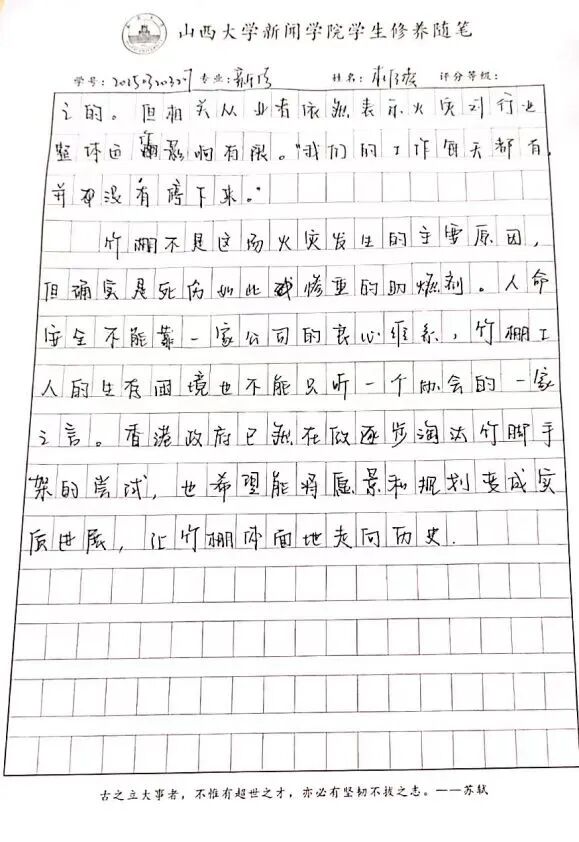 山西大学新闻学院学生修养随笔
学号: 专业: 新传 姓名: 评分等级:
之的。但相关从业者依然表示火灾对行业
整体的影响有限。"我们的工作每天都有,
并没有停下来。"
竹棚不是这场火灾发生的主要原因,
但确实是死伤如此惨重的助燃剂。人命
安全不能靠一家公司的良心维系,竹棚工
人的生存困境也不能只听一个协会的一家
之言。香港政府已然在做逐步淘汰竹脚手
架的尝试,也希望能将愿景和规划变成实
质进展,让竹棚体面地走向历史.
古之立大事者,不惟有超世之才,亦必有坚韧不拔之志。——苏轼